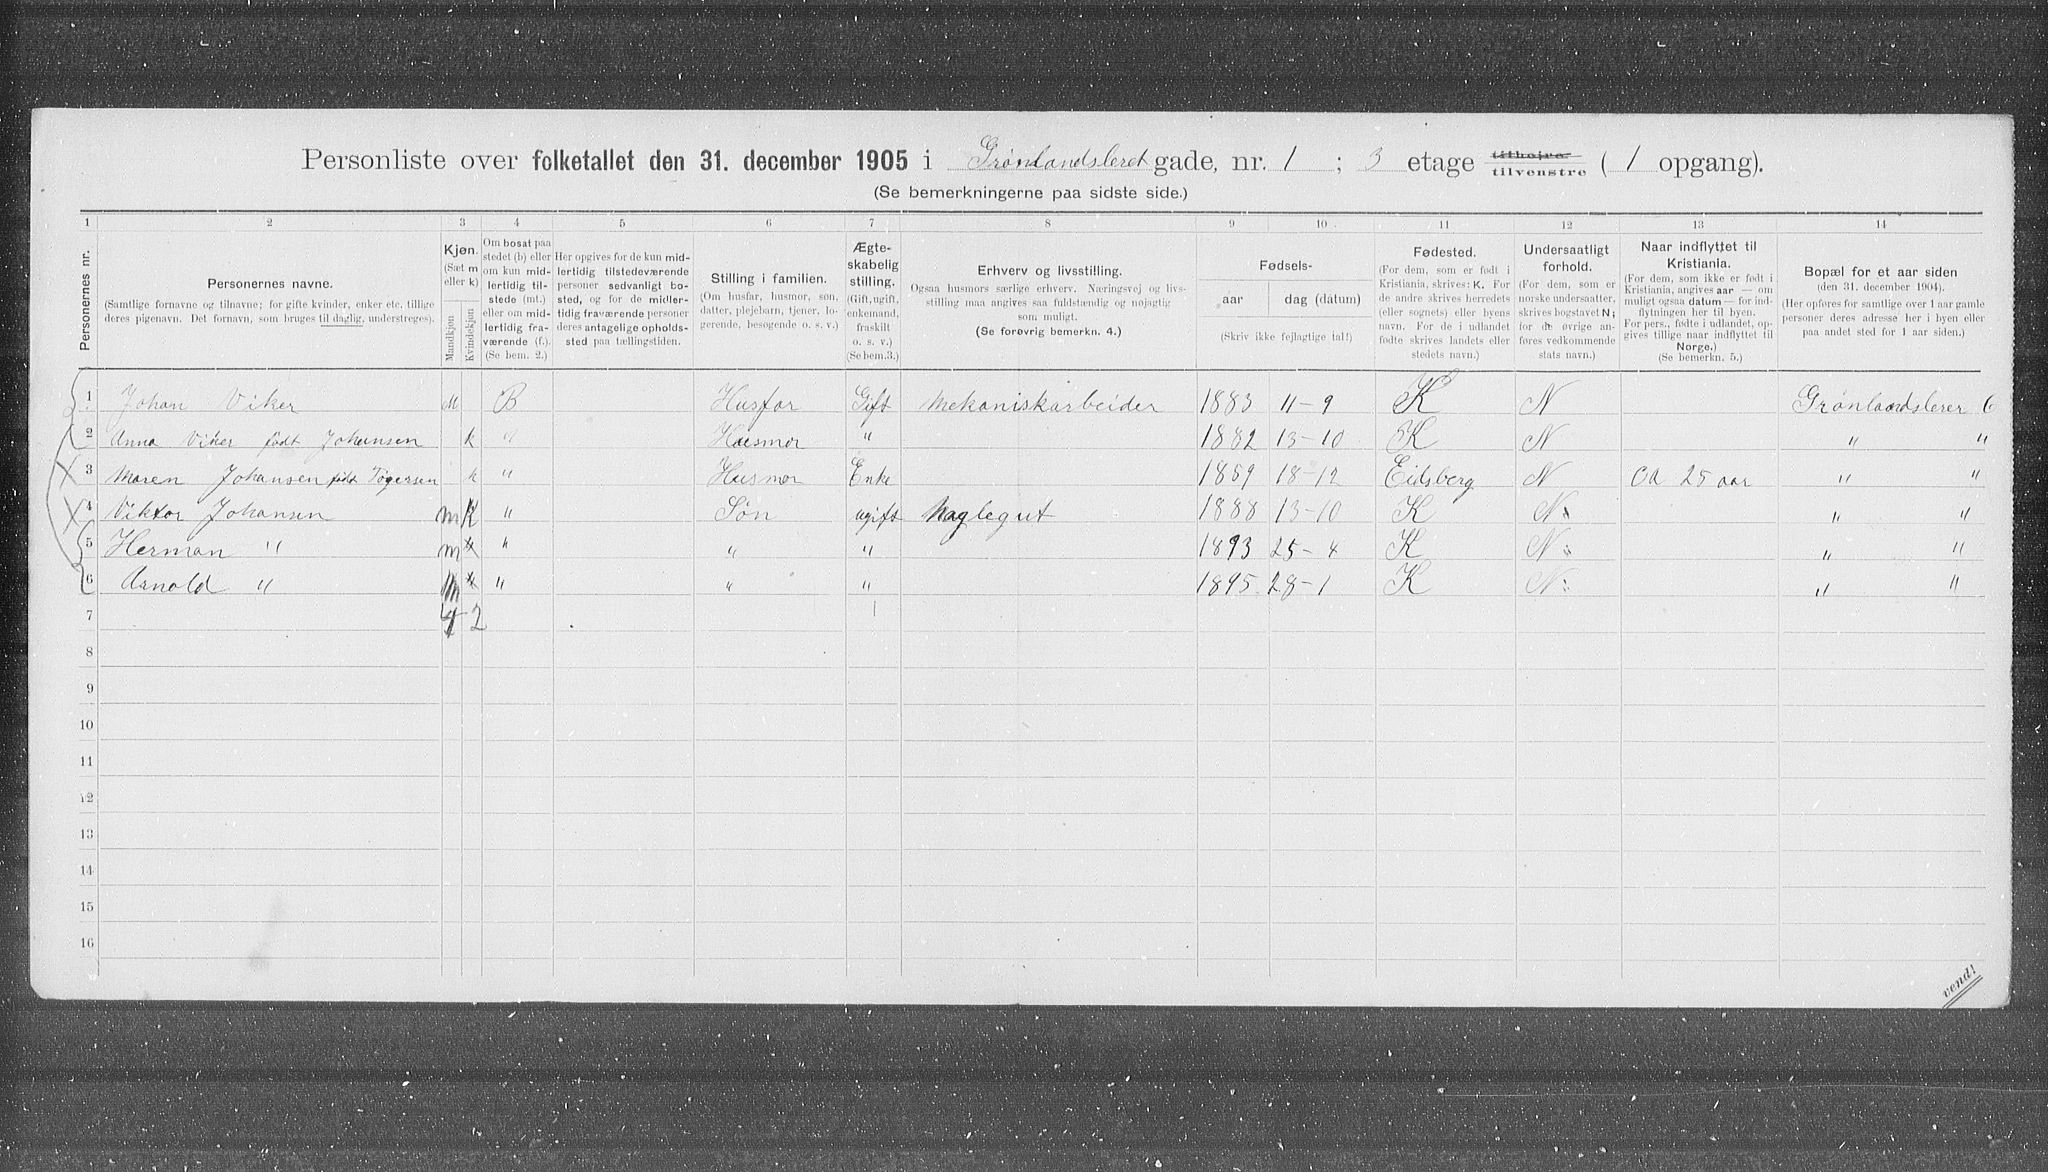 Personliste over folketallet den 31. december 1905 i Grønlandsleret gade, nr. 1 ; 3 etage tilhøire tilvenstre ( 1 opgang).
(Se bemerkningerne paa sidste side.)
1 2 3 4 5 6 7 8 9 10 11 12 13 14
Personernes nr.
Personernes navne.
(Samtlige fornavne og tilnavne; for gifte kvinder, enker etc. tillige
deres pigenavn. Det fornavn, som bruges til daglig, understreges).
Kjøn.
(Sæt m
eller k)
Mandkjøn
Kvindekjøn
Om bosat paa
stedet (b) eller
om kun mid-
lertidig til-
stede (mt.)
eller om mid-
lertidig fra-
værende (f.).
(Se bem. 2.)
Her opgives for de kun mid-
lertidig tilstedeværende
personer sedvanligt bo-
sted, og for de midler-
tidig fraværende personer
deres antagelige opholds-
sted paa tællingstiden.
Stilling i familien.
(Om husfar, husmor, søn,
datter, plejebarn, tjener, lo-
gerende, besøgende o. s. v.)
Ægte-
skabelig
stilling.
(Gift, ugift,
enkemand,
fraskilt
o. s. v.)
(Se bem. 3.)
Erhverv og livsstilling.
Ogsaa husmors særlige erhverv. Næringsvej og livs-
stilling maa angives saa fuldstændig og nøjagtig
som muligt.
(Se forøvrig bemerkn. 4.)
Fødsels-
aar dag (datum)
(Skriv ikke fejlagtige tal!)
Fødested.
(For dem, som er født i
Kristiania, skrives: K. For
de andre skrives herredets
(eller sognets) eller byens
navn. For de i udlandet
fødte skrives landets eller
stedets navn.)
Undersaatligt
forhold.
(For dem, som er
norske undersaatter,
skrives bogstavet N;
for de øvrige an-
føres vedkommende
stats navn.)
Naar indflyttet til
Kristiania.
(For dem, som ikke er født i
Kristiania, angives aar — om
muligt ogsaa datum — for ind-
flytningen her til byen.
For pers., fødte i udlandet, op-
gives tillige naar indflyttet til
Norge.)
(Se bemerkn. 5.)
Bopæl for et aar siden
(den 31. december 1904).
(Her opføres for samtlige over 1 aar gamle
personer deres adresse her i byen eller
paa andet sted for 1 aar siden.)
1 Johan Viker M B Husfar Gift Mekaniskarbeider 1883 11-9 K N Grønlaandslerer 6
2 Anna Viker født Johansen k " Husmor " 1882 13-10 K N " "
3 Maren Johansen født Tøgersen k " Husmor Enke 1859 18-12 Eidsberg N ca 25 aar " "
4 Viktor Johansen m K " Søn ugift Naglegut 1888 13-10 K N " "
5 Herman " m " " " 1893 25-4 K N " "
6 Arnold " m " " " 1895 28-1 K N " "
7 4 2
8
9
10
11
12
13
14
15
16
vend!